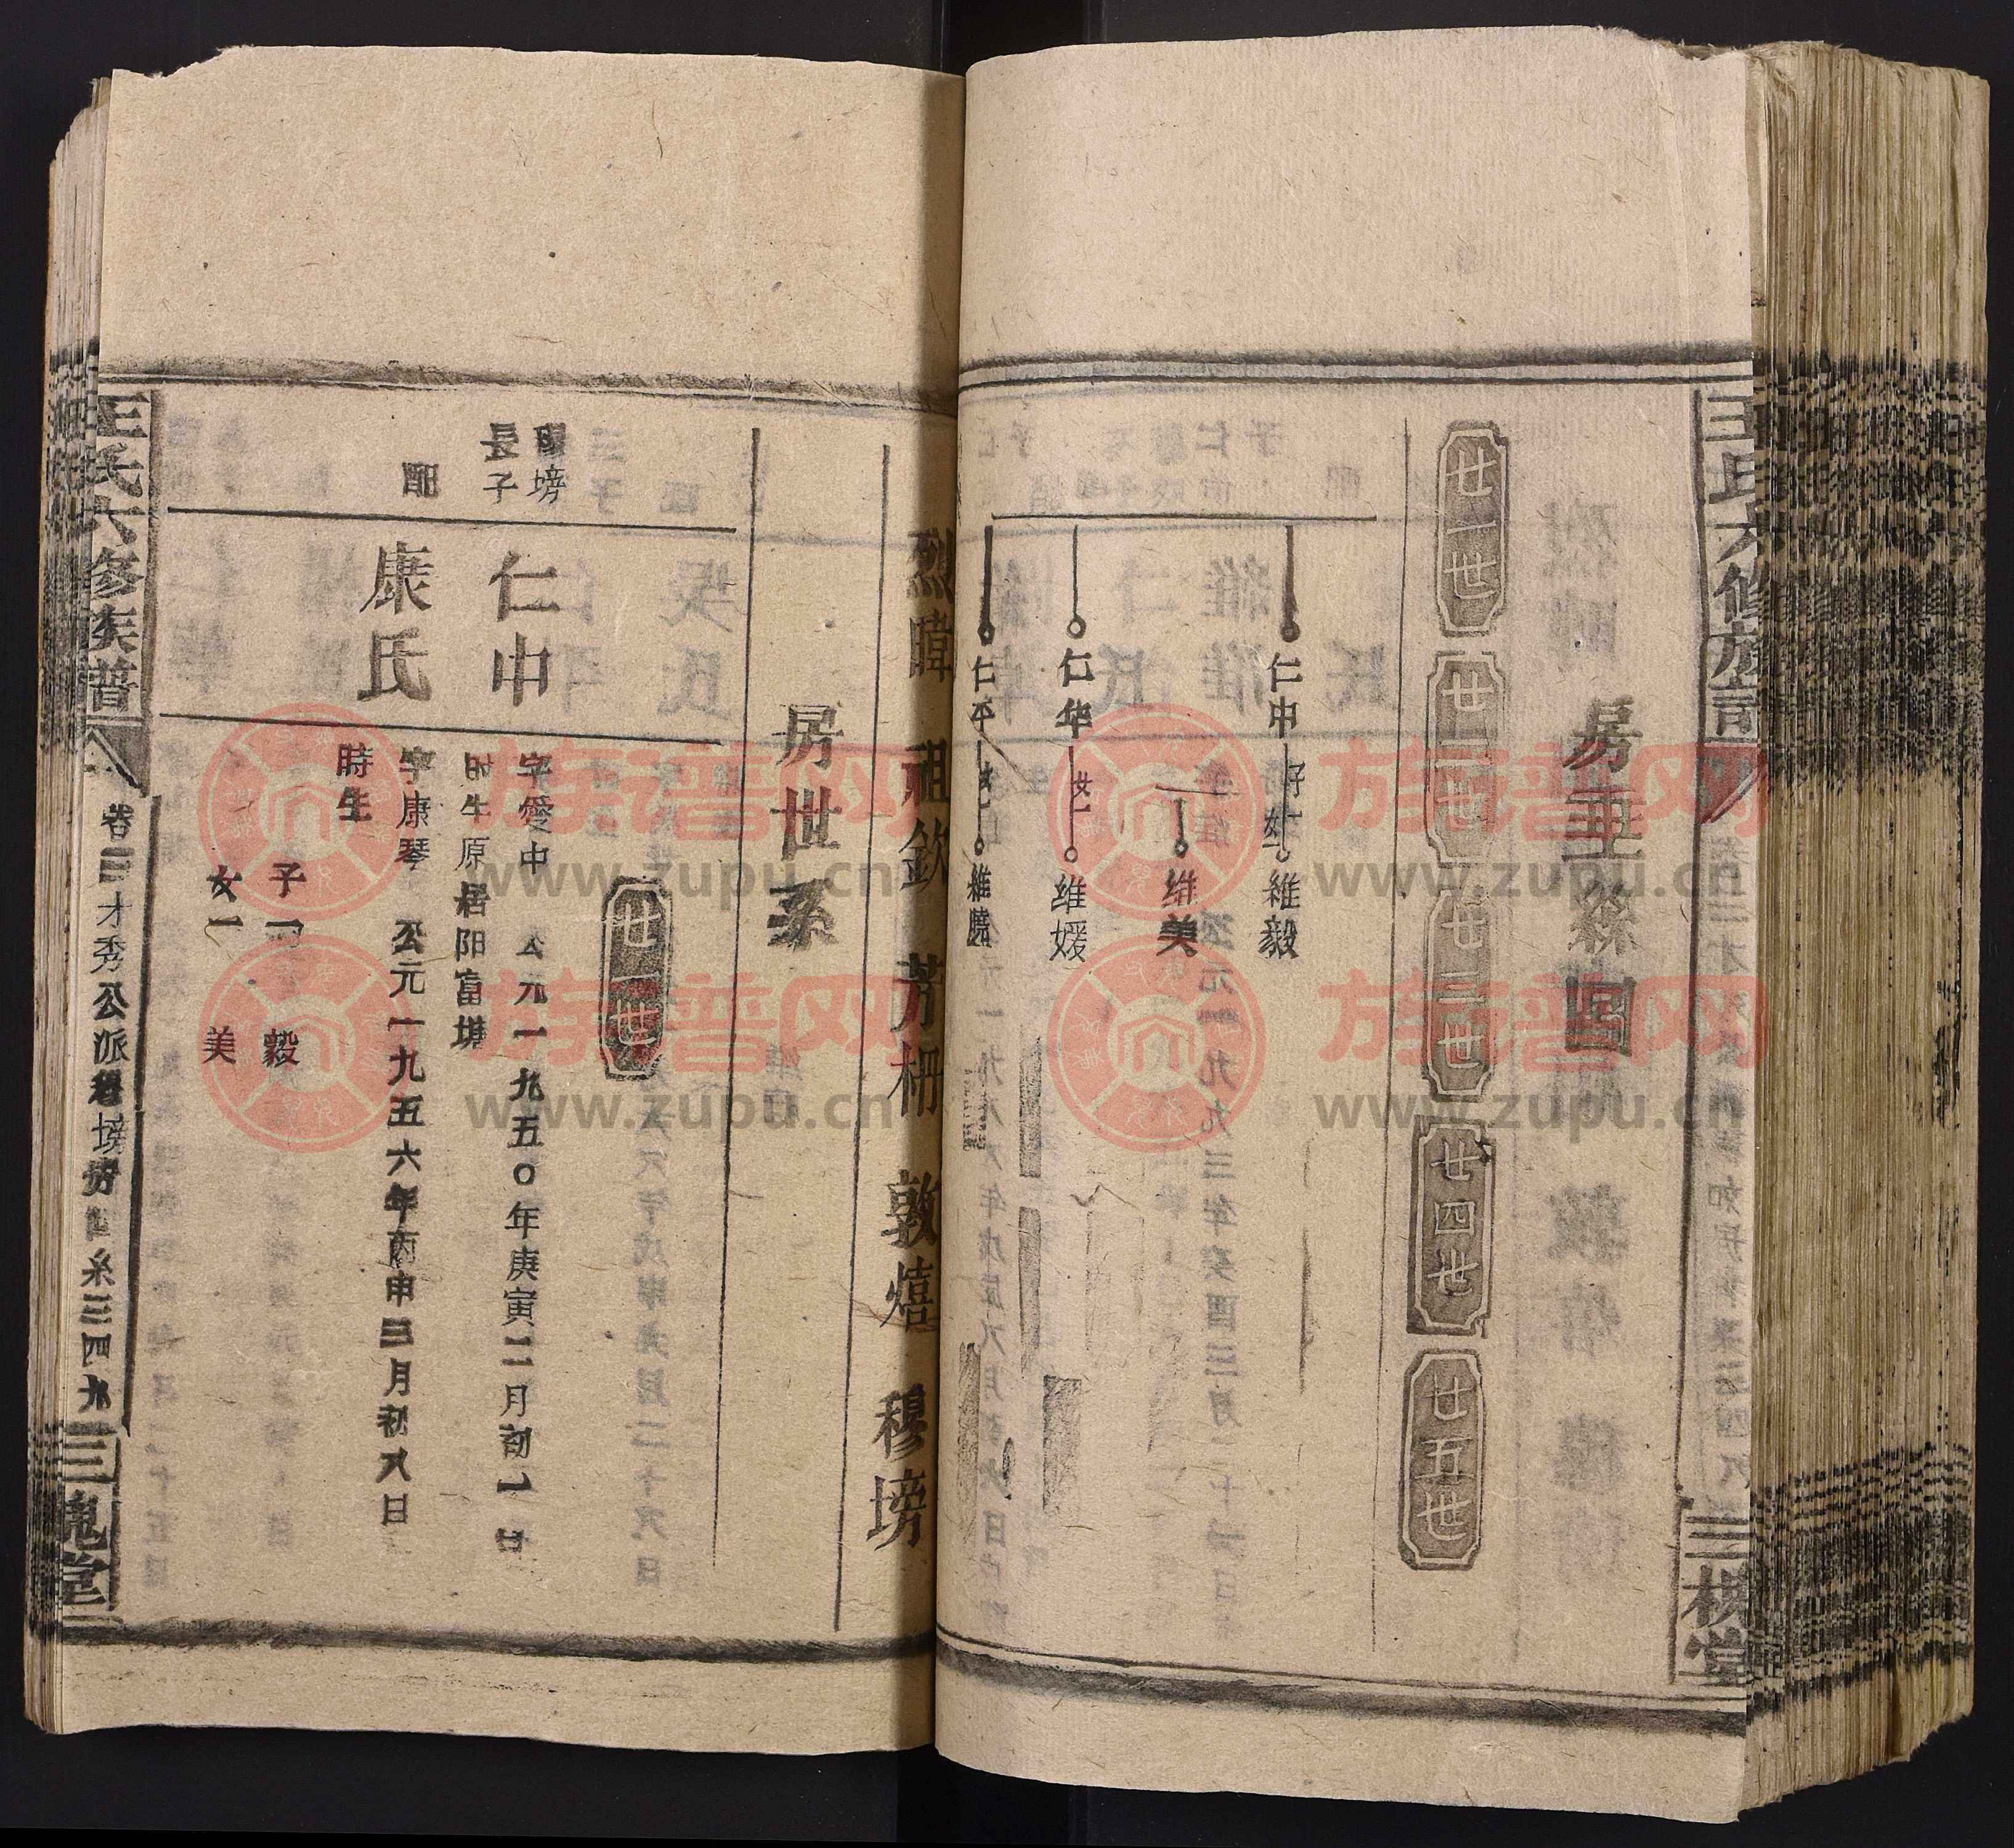 王氏六修族
三槐堂
房垂絲圖
廿一世
廿二世
廿三世
廿四世
廿五世
仁中
維毅
维美
仁华
女一
维媛
仁平
女一
維曉
烈暐 祖欽 芳柵 敦熺 穆塝
房世系
廿一世
穆塝
長子
仁中
字愛中 公元一九五〇年庚寅二月初一日
时生原居阳富塘
配
康氏
字康琴 公元一九五六年丙申三月初八日
時生
子一 毅
女一 美
王氏六修族譜
卷三才秀公派穆塝房世系三四九
三槐堂
族谱网
www.zupu.cn
族谱网
www.zupu.cn
族谱网
www.zupu.cn
族谱网
www.zupu.cn